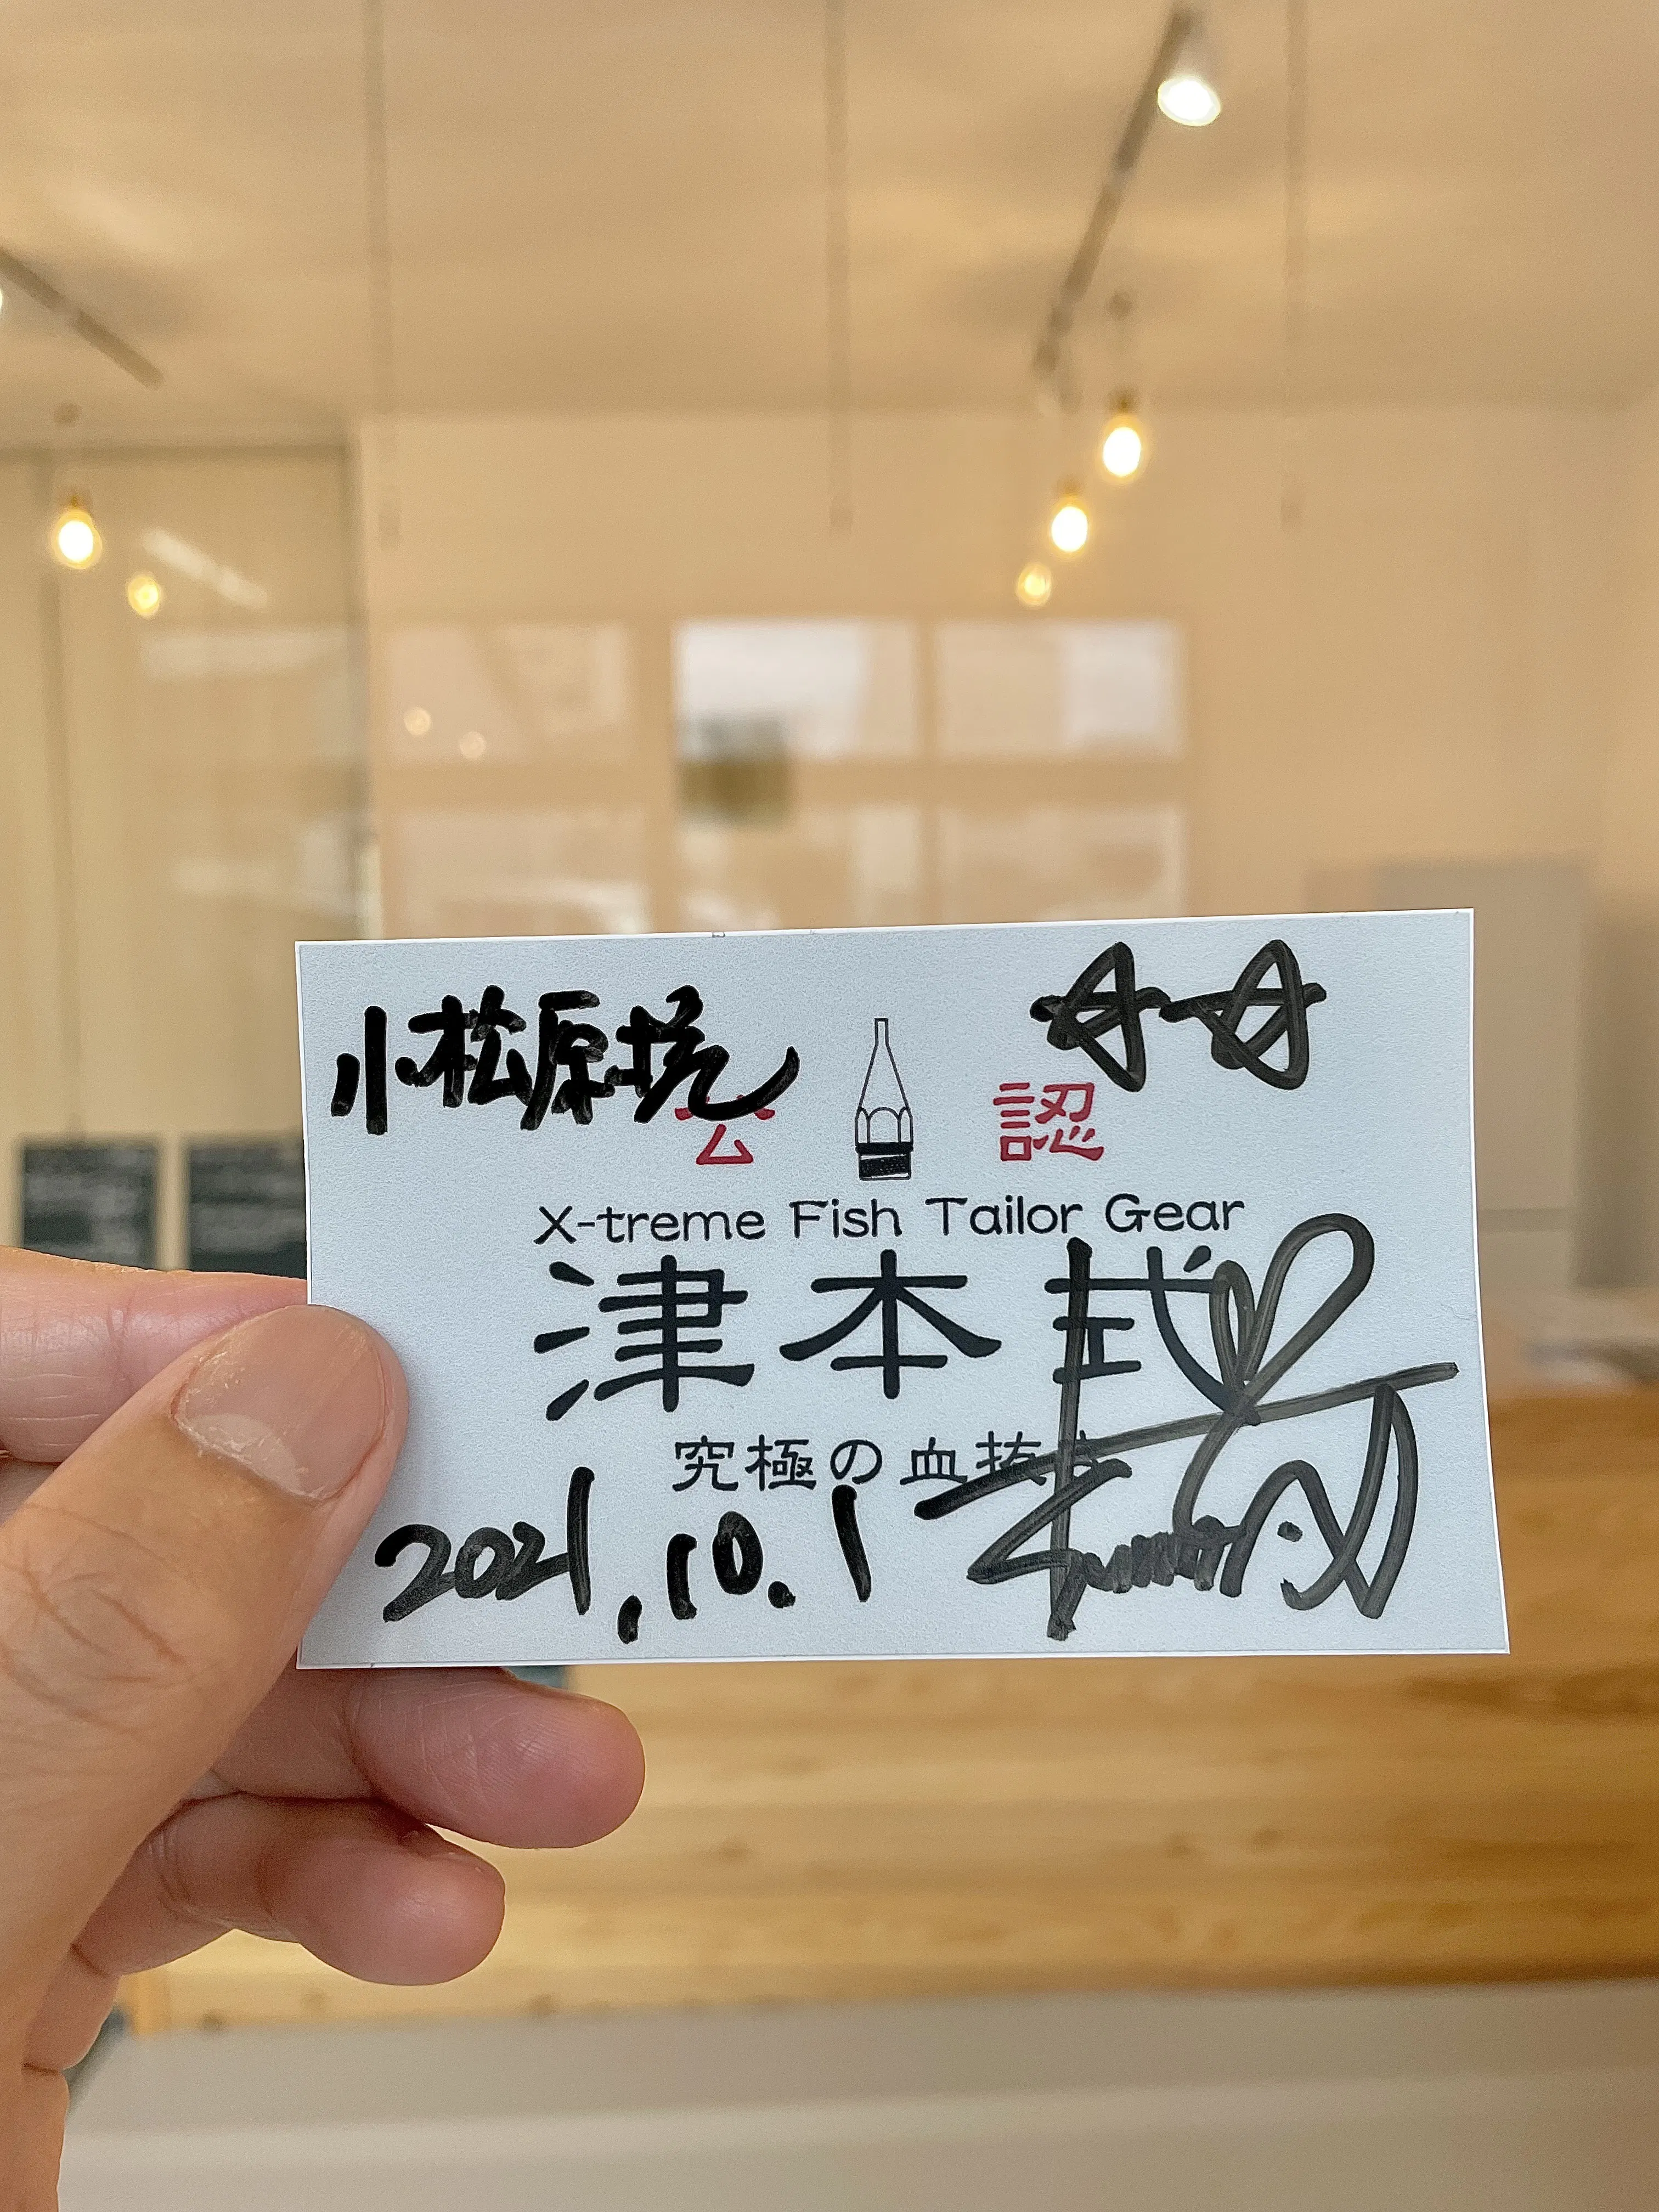 小松原
公 認
X-treme Fish Tailor Gear
津本式
究極の血抜き
2021.10.1